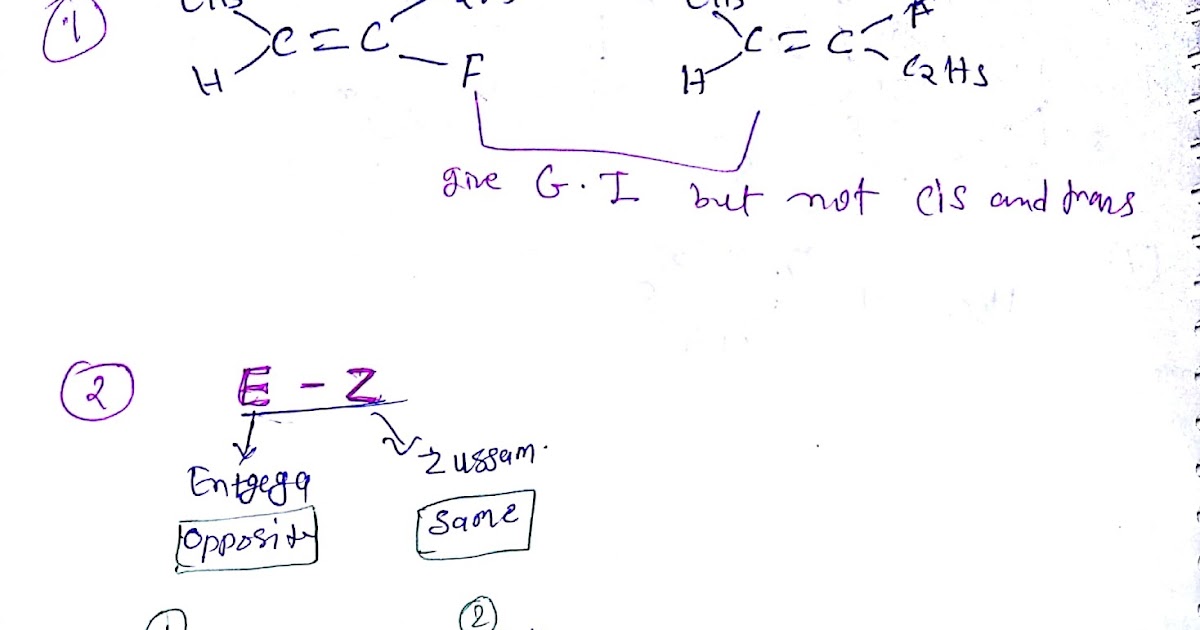 1
C = C
H
F
C = C
H
C2H5
give G.I but not cis and trans
2
E - Z
Entgegq
Zussam.
Opposite
Same
1
2